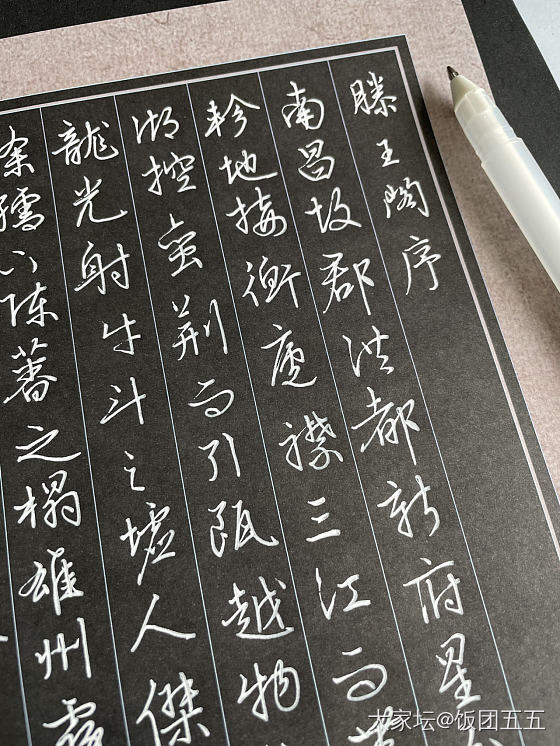 滕王阁序
南昌故郡洪都新府星
轸地接衡庐襟三江而
湖控蛮荆而引瓯越物
龍光射牛斗之墟人傑
徐孺下陈蕃之榻雄州霧
大家坛@饭团五五